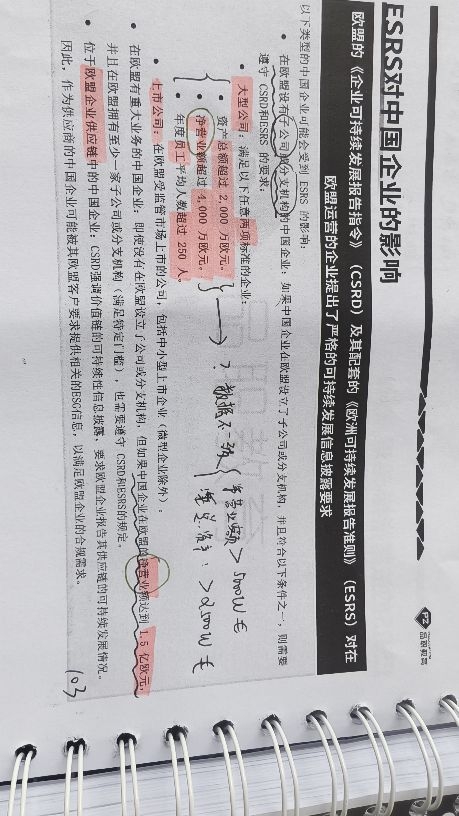 ESRS对中国企业的影响
品职教育
欧盟的《企业可持续发展报告指令》（CSRD）及其配套的《欧洲可持续发展报告准则》（ESRS）对在
欧盟运营的企业提出了严格的可持续发展信息披露要求
以下类型的中国企业可能会受到 ESRS 的影响：
• 在欧盟设有子公司或分支机构的中国企业：如果中国企业在欧盟设立了子公司或分支机构，并且符合以下条件之一，则需要
遵守 CSRD和ESRS 的要求：
• 大型公司：满足以下任意两项标准的企业：
• 资产总额超过 2,000 万欧元。
• 净营业额超过 4,000 万欧元。
• 年度员工平均人数超过 250 人。
→ ? 数据不一致
净营业额 > 5000W €
总资产： > 2500W €
• 上市公司：在欧盟受监管市场上市的公司，包括中小型上市企业（微型企业除外）。
• 在欧盟有重大业务的中国企业：即使没有在欧盟设立子公司或分支机构，但如果中国企业在欧盟的净营业额达到 1.5 亿欧元，
并且在欧盟拥有至少一家子公司或分支机构（满足特定门槛），也需要遵守 CSRD和ESRS的规定。
• 位于欧盟企业供应链中的中国企业：CSRD强调价值链的可持续性信息披露，要求欧盟企业报告其供应链的可持续发展情况。
因此，作为供应商的中国企业可能被其欧盟客户要求提供相关的ESG信息，以满足欧盟企业的合规需求。
103